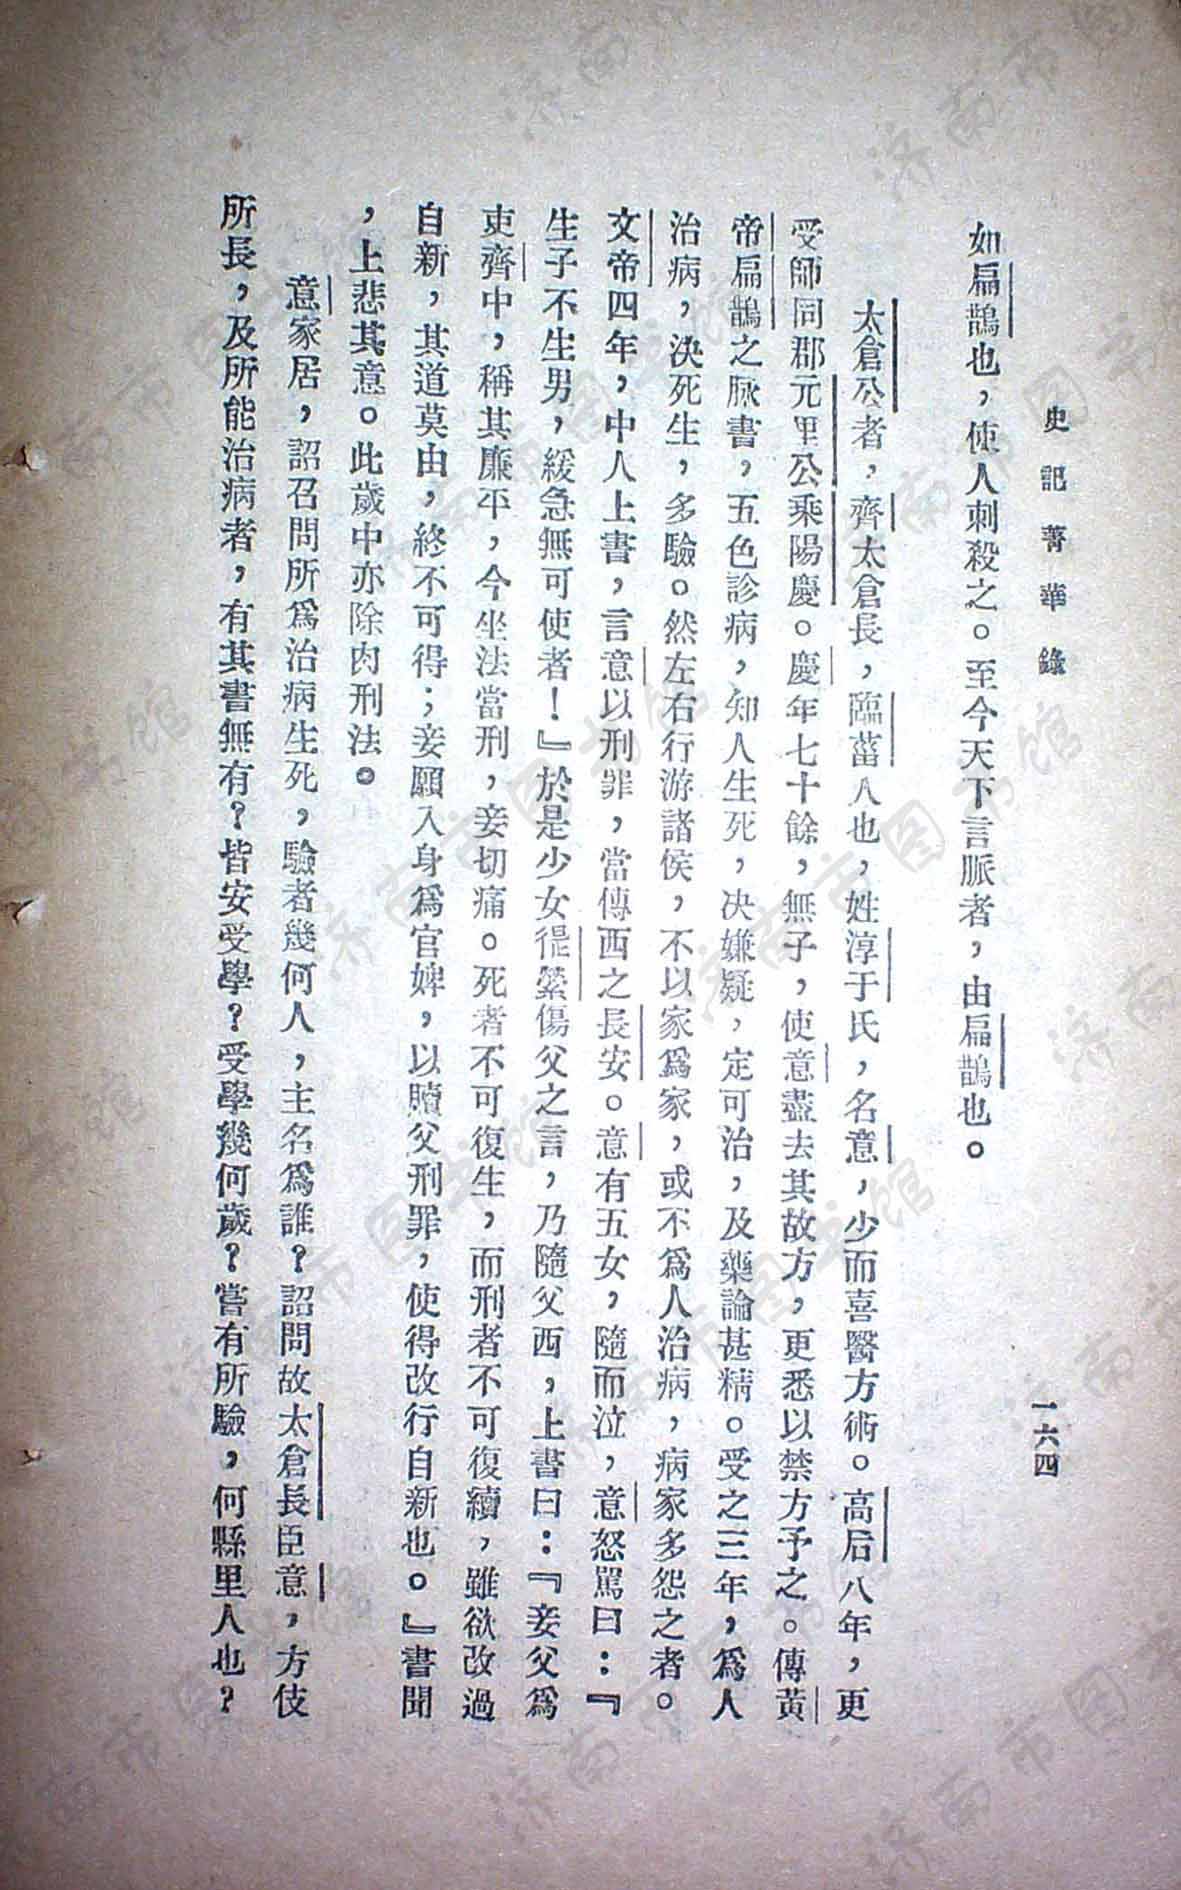 史記菁華錄
一六四
如扁鵲也，使人刺殺之。至今天下言脈者，由扁鵲也。
太倉公者，齊太倉長，臨菑人也，姓淳于氏，名意，少而喜醫方術。高后八年，更
受師同郡元里公乘陽慶。慶年七十餘，無子，使意盡去其故方，更悉以禁方予之。傳黃
帝扁鵲之脉書，五色診病，知人生死，決嫌疑，定可治，及藥論甚精。受之三年，爲人
治病，決死生，多驗。然左右行游諸侯，不以家爲家，或不爲人治病，病家多怨之者。
文帝四年，中人上書，言意以刑罪，當傳西之長安。意有五女，隨而泣，意怒駡曰：『
生子不生男，緩急無可使者！』於是少女緹縈傷父之言，乃隨父西，上書曰：『妾父爲
吏齊中，稱其廉平，今坐法當刑，妾切痛。死者不可復生，而刑者不可復續，雖欲改過
自新，其道莫由，終不可得；妾願入身爲官婢，以贖父刑罪，使得改行自新也。』書聞
，上悲其意。此歲中亦除肉刑法。
意家居，詔召問所爲治病生死，驗者幾何人，主名爲誰？詔問故太倉長臣意，方伎
所長，及所能治病者，有其書無有？皆安受學？受學幾何歲？嘗有所驗，何縣里人也？
济南市图书馆